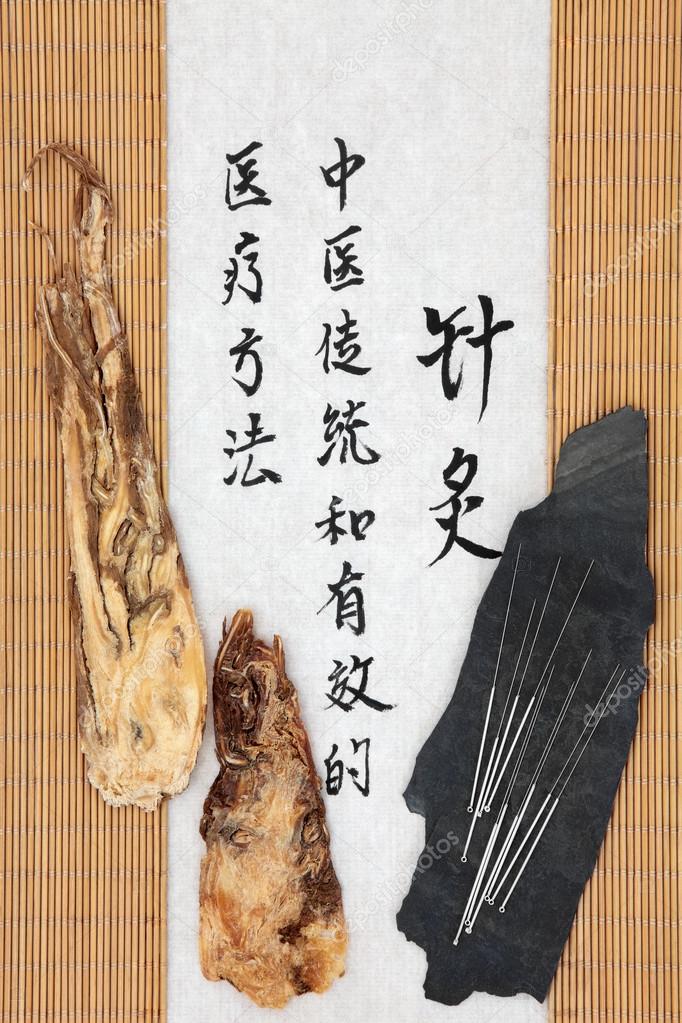 针灸
中医传统和有效的
医疗方法
depositphotos